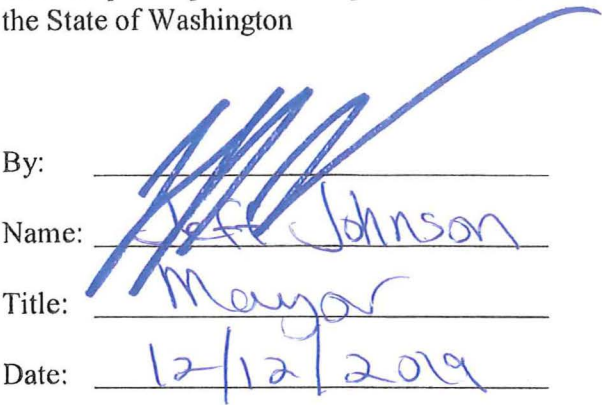 the State of Washington
By:
Name: Jeff Johnson
Title: Mayor
Date: 12/12/2019